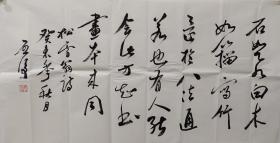 石如飞白木
如籀写竹
还于八法通
若也有人能
会此方知书
画本来同
松雪翁诗
癸未年秋月